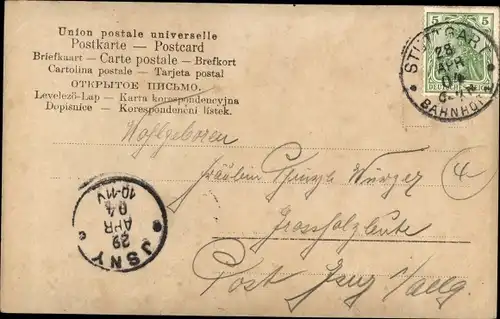 Union postale universelle
Postkarte — Postcard
Briefkaart — Carte postale — Brefkort
Cartolina postale — Tarjeta postal
ОТКРЫТОЕ ПИСЬМО.
Levelező-Lap — Karta korespondencyjna
Dopisnice — Korespondenční lístek.
5 5
STUTTGART
28
APR
04
BAHNHOF
Wohlgeboren
Fräulein Wurzer
Grossholzleute
Post Isny Allg.
JSNY
29
APR
04
10-11V